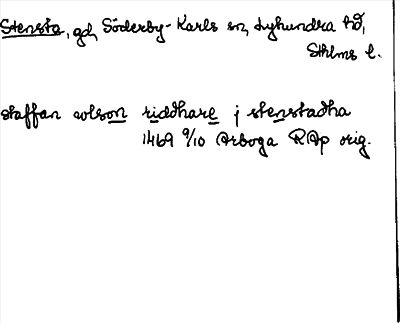 Stensta, gd, Söderby-Karls sn, Lyhundra hd,
Sthlms l.
staffan wlson riddhare j stenstadha
1469 9/10 Arboga RAp orig.